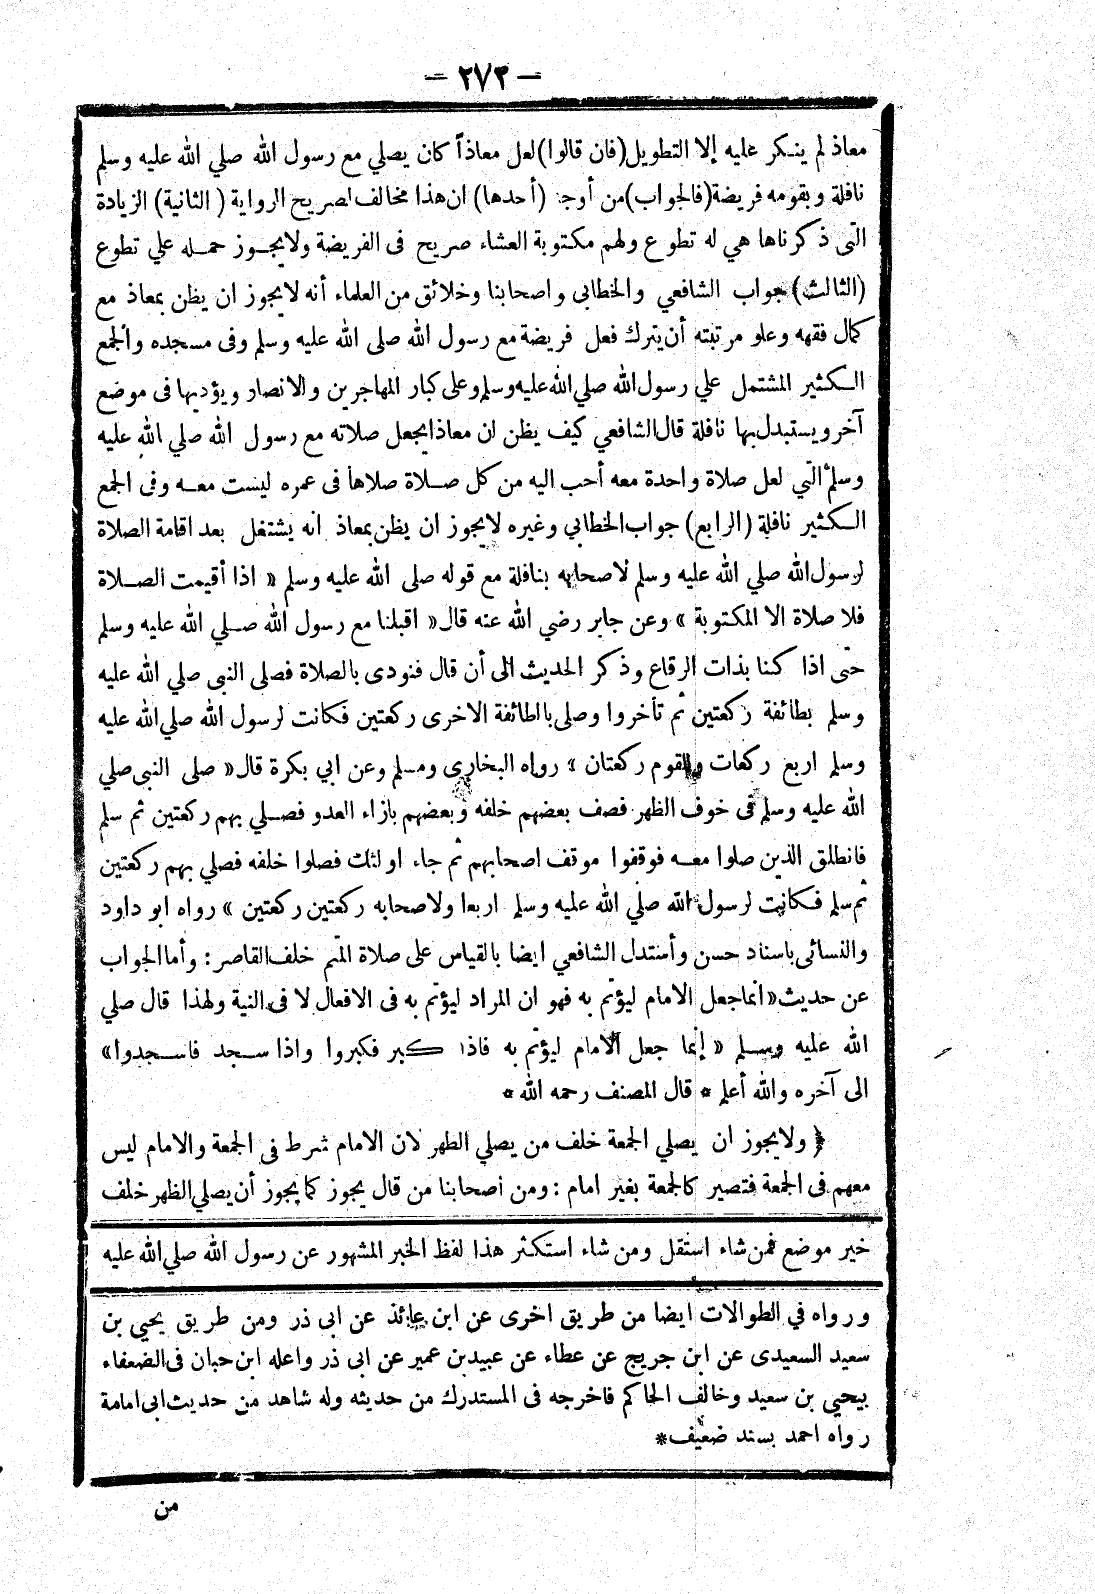 — ٢٧٣ —
معاذ لم ينكر عليه إلا التطويل (فان قالوا) لعل معاذاً كان يصلي مع رسول الله صلي الله عليه وسلم
نافلة وبقومه فريضة (فالجواب) من أوجه (أحدها) ان هذا مخالف لصريح الرواية (الثانية) الزيادة
التى ذكرناها هي له تطوع ولهم مكتوبة العشاء صريح فى الفريضة ولا يجوز حمله علي تطوع
(الثالث) جواب الشافعي والخطابى واصحابنا وخلائق من العلماء أنه لا يجوز ان يظن بمعاذ مع
كمال فقهه وعلو مرتبته أن يترك فعل فريضة مع رسول الله صلى الله عليه وسلم وفى مسجده والجمع
الكثير المشتمل علي رسول الله صلي الله عليه وسلم وعلى كبار المهاجرين والانصار ويؤديها فى موضع
آخر ويستبدل بها نافلة قال الشافعي كيف يظن ان معاذا يجعل صلاته مع رسول الله صلي الله عليه
وسلم التي لعل صلاة واحدة معه أحب اليه من كل صلاة صلاها فى عمره ليست معه وفى الجمع
الكثير نافلة (الرابع) جواب الخطابي وغيره لا يجوز ان يظن بمعاذ انه يشتغل بعد اقامة الصلاة
لرسول الله صلي الله عليه وسلم لاصحابه بنافلة مع قوله صلى الله عليه وسلم « اذا أقيمت الصلاة
فلا صلاة الا المكتوبة » وعن جابر رضي الله عنه قال « اقبلنا مع رسول الله صلي الله عليه وسلم
حتى اذا كنا بذات الرقاع وذكر الحديث الى أن قال فنودى بالصلاة فصلى النبى صلي الله عليه
وسلم بطائفة ركعتين ثم تأخروا وصلى بالطائفة الاخرى ركعتين فكانت لرسول الله صلي الله عليه
وسلم اربع ركعات وللقوم ركعتان » رواه البخارى ومسلم وعن ابي بكرة قال « صلى النبى صلي
الله عليه وسلم فى خوف الظهر فصف بعضهم خلفه وبعضهم بازاء العدو فصلي بهم ركعتين ثم سلم
فانطلق الذين صلوا معه فوقفوا موقف اصحابهم ثم جاء اولئك فصلوا خلفه فصلي بهم ركعتين
ثم سلم فكانت لرسول الله صلي الله عليه وسلم اربعا ولاصحابه ركعتين ركعتين » رواه ابو داود
والنسائى باسناد حسن وأستدل الشافعي ايضا بالقياس على صلاة المتم خلف القاصر : وأما الجواب
عن حديث « انما جعل الامام ليؤتم به فهو ان المراد ليؤتم به فى الافعال لا فى النية ولهذا قال صلي
الله عليه وسلم « إنما جعل الامام ليؤتم به فاذا كبر فكبروا واذا سجد فاسجدوا »
الى آخره والله أعلم * قال المصنف رحمه الله *
﴿ ولا يجوز ان يصلي الجمعة خلف من يصلي الظهر لان الامام شرط فى الجمعة والامام ليس
معهم فى الجمعة فتصير كالجمعة بغير امام : ومن اصحابنا من قال يجوز كما يجوز أن يصلي الظهر خلف
خير موضع فمن شاء استقل ومن شاء استكثر هذا لفظ الخبر المشهور عن رسول الله صلي الله عليه
ورواه في الطوالات ايضا من طريق اخرى عن ابن عائذ عن ابى ذر ومن طريق يحيي بن
سعيد السعيدى عن ابن جريج عن عطاء عن عبيد بن عمير عن ابى ذر واعله ابن حبان فى الضعفاء
بيحيي بن سعيد وخالف الحاكم فاخرجه فى المستدرك من حديثه وله شاهد من حديث ابى امامة
رواه احمد بسند ضعيف *
من